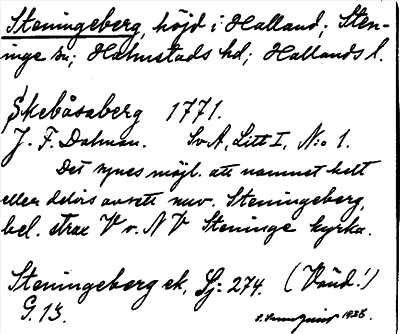 Steningeberg, höjd i Halland; Sten-
inge sn; Halmstads hd; Hallands l.
Skebåsaberg 1771.
J. F. Dalman. SvA, Litt I, N:o 1.
Det synes möjl. att namnet helt
eller delvis avsett nuv. Steningeberg,
bel. strax V v. NV Steninge kyrka.
Steningeberg ek, Sj: 274. (Vänd!)
G. 13.
1938.